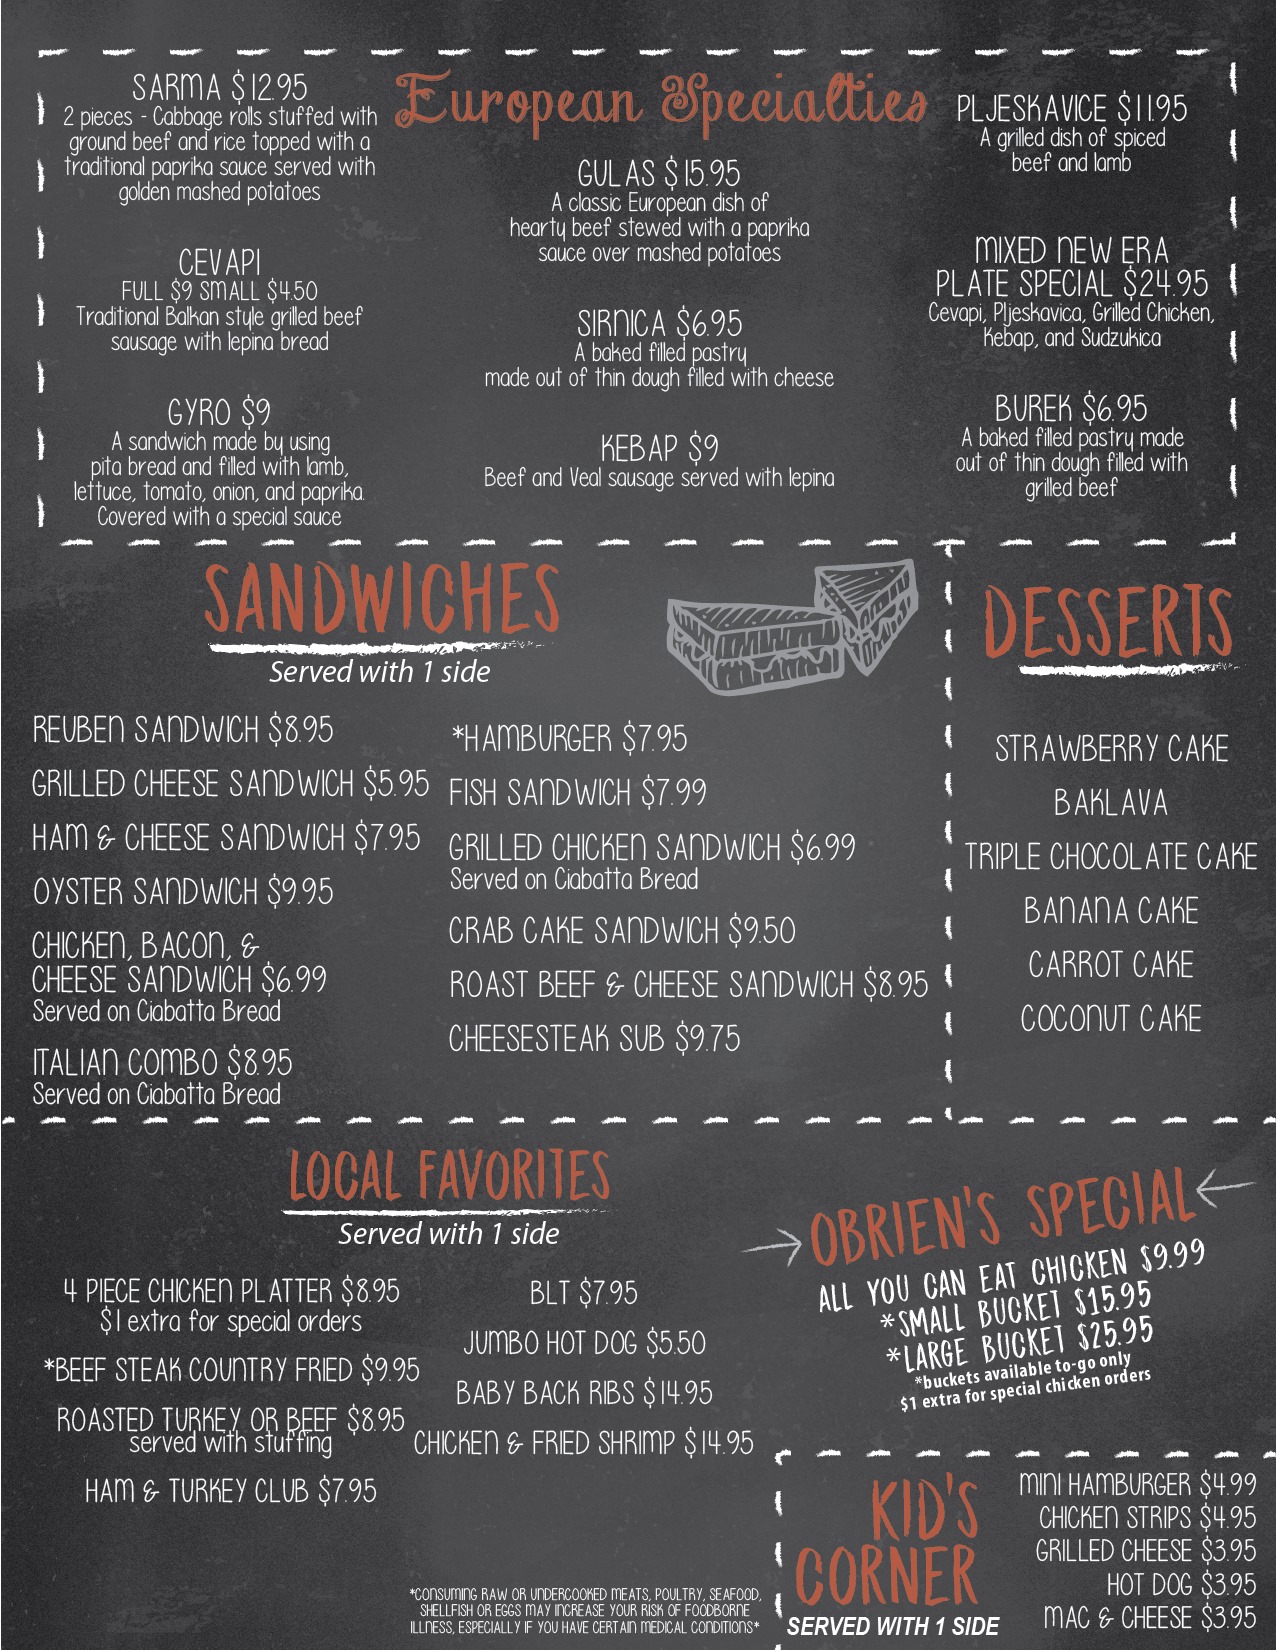 European Specialties
SARMA $12.95
2 pieces - Cabbage rolls stuffed with
ground beef and rice topped with a
traditional paprika sauce served with
golden mashed potatoes
CEVAPI
FULL $9 SMALL $4.50
Traditional Balkan style grilled beef
sausage with lepina bread
GYRO $9
A sandwich made by using
pita bread and filled with lamb,
lettuce, tomato, onion, and paprika.
Covered with a special sauce
GULAS $15.95
A classic European dish of
hearty beef stewed with a paprika
sauce over mashed potatoes
SIRNICA $6.95
A baked filled pastry
made out of thin dough filled with cheese
KEBAP $9
Beef and Veal sausage served with lepina
PLJESKAVICE $11.95
A grilled dish of spiced
beef and lamb
MIXED NEW ERA
PLATE SPECIAL $24.95
Cevapi, Pljeskavica, Grilled Chicken,
Kebap, and Sudzukica
BUREK $6.95
A baked filled pastry made
out of thin dough filled with
grilled beef
SANDWICHES
Served with 1 side
REUBEN SANDWICH $8.95
GRILLED CHEESE SANDWICH $5.95
HAM & CHEESE SANDWICH $7.95
OYSTER SANDWICH $9.95
CHICKEN, BACON, &
CHEESE SANDWICH $6.99
Served on Ciabatta Bread
ITALIAN COMBO $8.95
Served on Ciabatta Bread
*HAMBURGER $7.95
FISH SANDWICH $7.99
GRILLED CHICKEN SANDWICH $6.99
Served on Ciabatta Bread
CRAB CAKE SANDWICH $9.50
ROAST BEEF & CHEESE SANDWICH $8.95
CHEESESTEAK SUB $9.75
DESSERTS
STRAWBERRY CAKE
BAKLAVA
TRIPLE CHOCOLATE CAKE
BANANA CAKE
CARROT CAKE
COCONUT CAKE
LOCAL FAVORITES
Served with 1 side
4 PIECE CHICKEN PLATTER $8.95
$1 extra for special orders
*BEEF STEAK COUNTRY FRIED $9.95
ROASTED TURKEY OR BEEF $8.95
served with stuffing
HAM & TURKEY CLUB $7.95
BLT $7.95
JUMBO HOT DOG $5.50
BABY BACK RIBS $14.95
CHICKEN & FRIED SHRIMP $14.95
OBRIEN'S SPECIAL
ALL YOU CAN EAT CHICKEN $9.99
*SMALL BUCKET $15.95
*LARGE BUCKET $25.95
*buckets available to-go only
$1 extra for special chicken orders
KID'S
CORNER
SERVED WITH 1 SIDE
MINI HAMBURGER $4.99
CHICKEN STRIPS $4.95
GRILLED CHEESE $3.95
HOT DOG $3.95
MAC & CHEESE $3.95
*CONSUMING RAW OR UNDERCOOKED MEATS, POULTRY, SEAFOOD,
SHELLFISH OR EGGS MAY INCREASE YOUR RISK OF FOODBORNE
ILLNESS, ESPECIALLY IF YOU HAVE CERTAIN MEDICAL CONDITIONS*